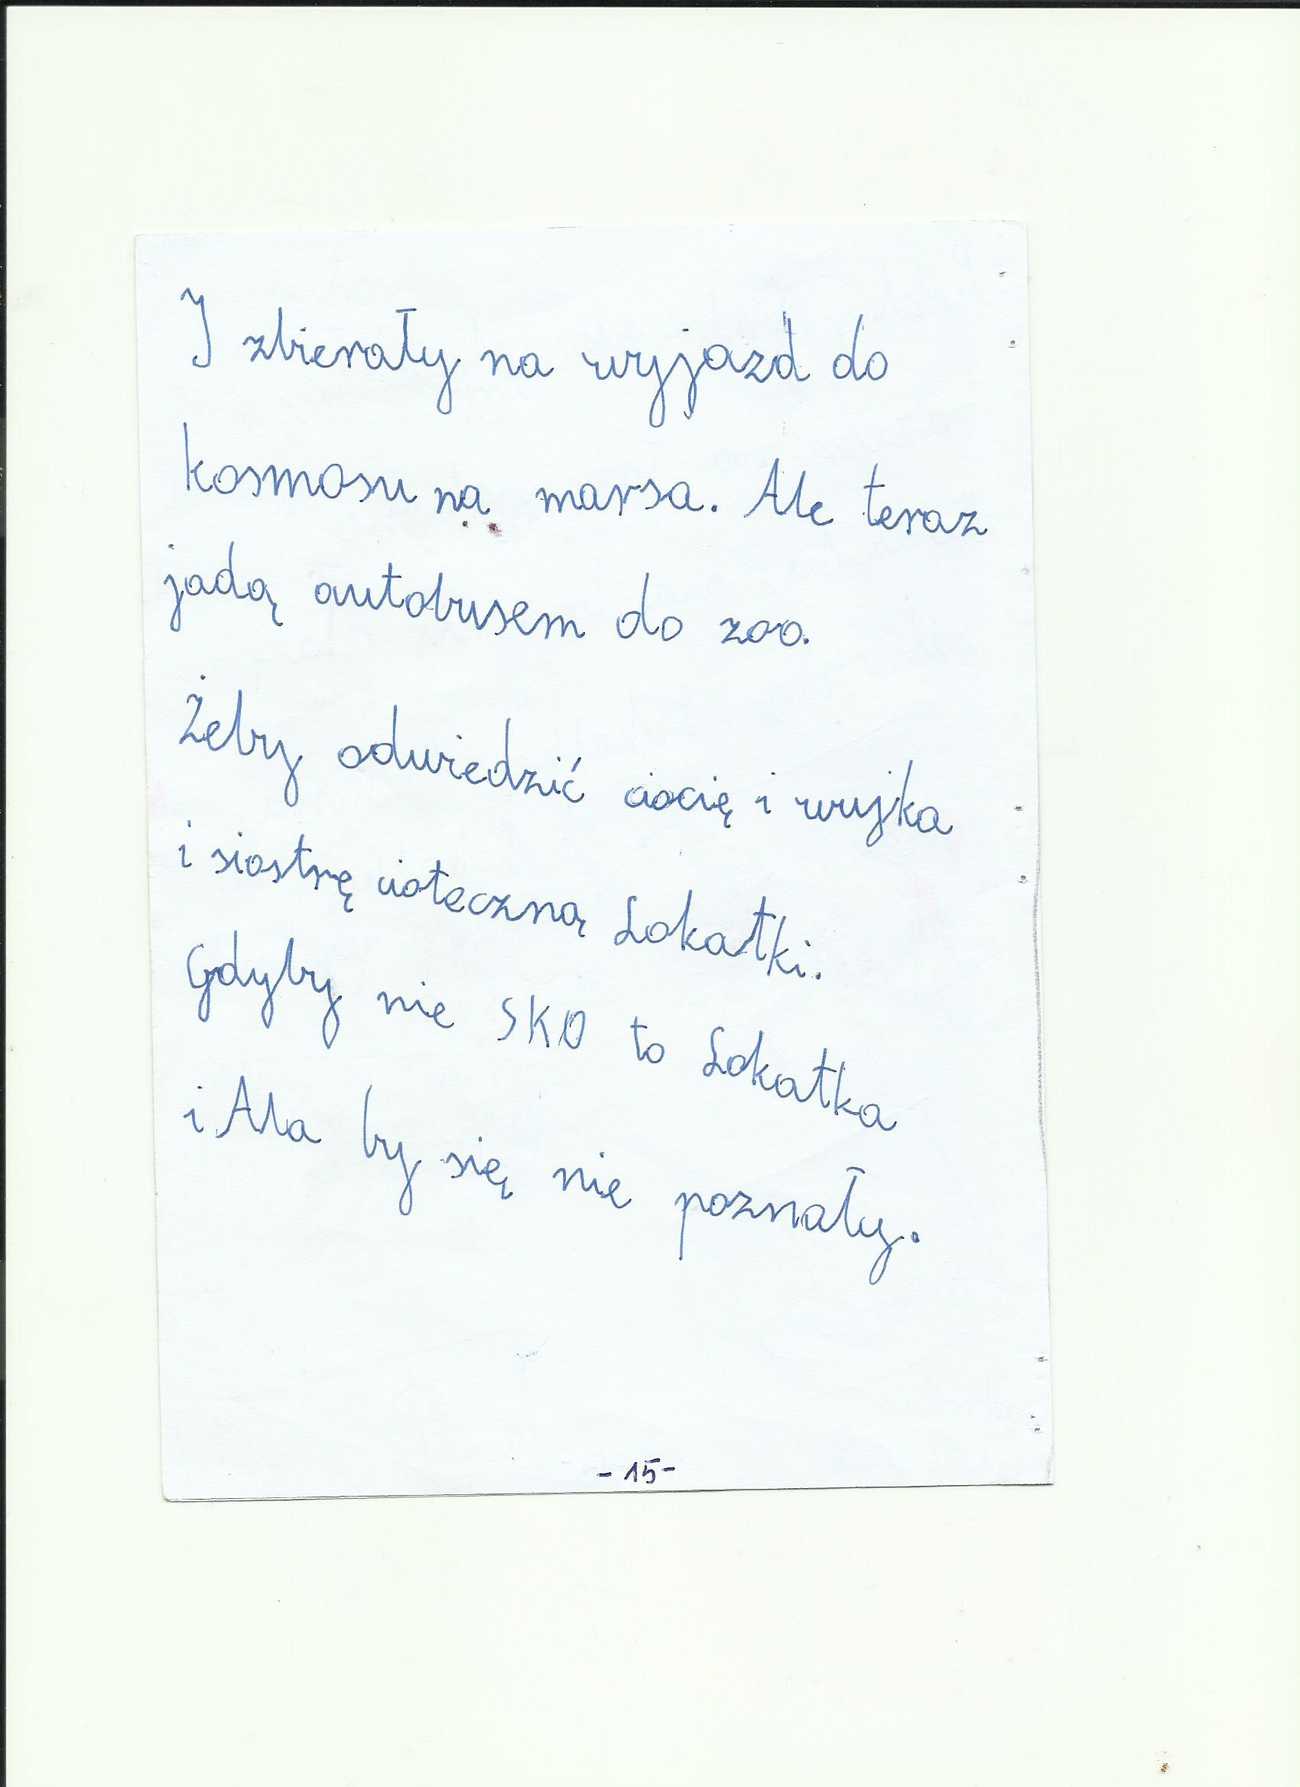 I zbierały na wyjazd do
kosmosu na marsa. Ale teraz
jadą autobusem do zoo.
Żeby odwiedzić ciocię i wujka
i siostrę cioteczną Lokatki.
Gdyby nie SKO to Lokatka
i Ala by się nie poznały.
- 15 -